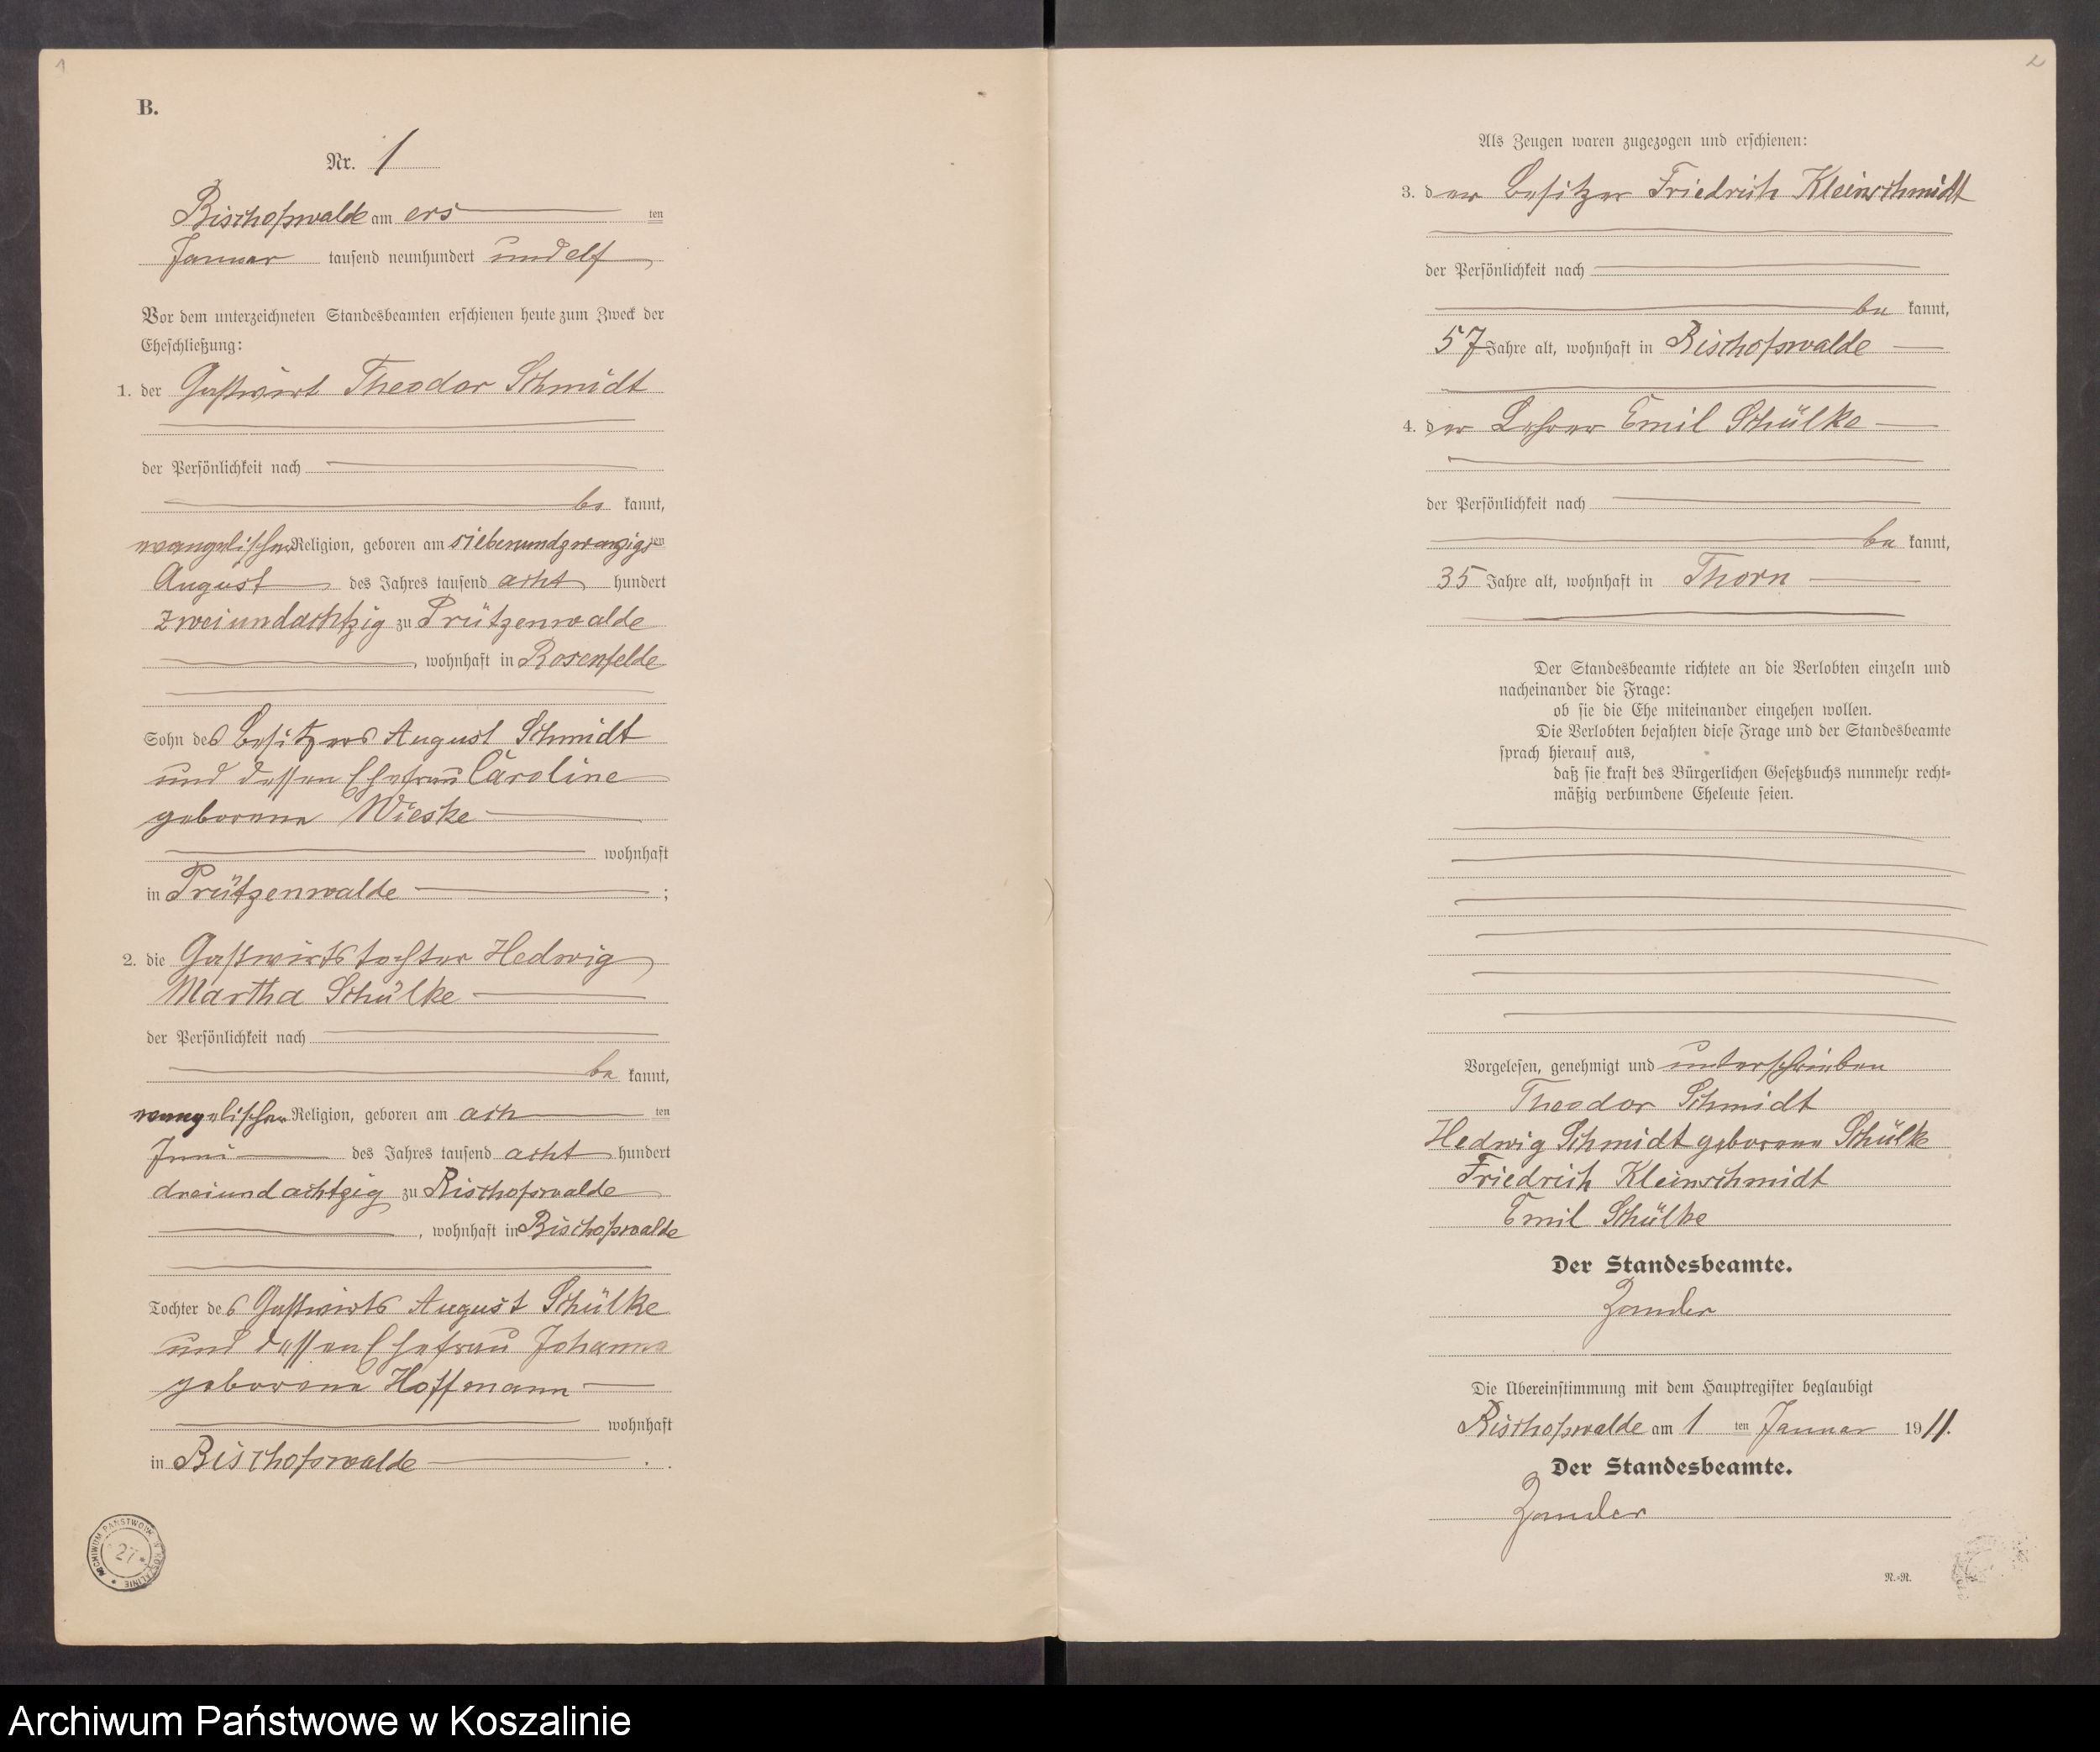 1
B.
Nr. 1
Bischofswalde am ersten
Januar tausend neunhundert und elf
Vor dem unterzeichneten Standesbeamten erschienen heute zum Zweck der
Eheschließung:
1. der Gastwirt Theodor Schmidt
der Persönlichkeit nach
be kannt,
evangelischer Religion, geboren am siebenundzwanzigsten
August des Jahres tausend acht hundert
zweiundachtzig zu Prützenwalde
, wohnhaft in Rosenfelde
Sohn des Besitzers August Schmidt
und dessen Ehefrau Caroline
geborene Wieske
wohnhaft
in Prützenwalde ;
2. die Gastwirtstochter Hedwig
Martha Schülke
der Persönlichkeit nach
be kannt,
evangelischer Religion, geboren am achten
Juni des Jahres tausend acht hundert
dreiundachtzig zu Bischofswalde
, wohnhaft in Bischofswalde
Tochter des Gastwirts August Schülke
und dessen Ehefrau Johanna
geborene Hoffmann
wohnhaft
in Bischofswalde .
ARCHIWUM PAŃSTWOWE W KOSZALINIE
27
2
Als Zeugen waren zugezogen und erschienen:
3. der Besitzer Friedrich Kleinschmidt
der Persönlichkeit nach
be kannt,
57 Jahre alt, wohnhaft in Bischofswalde
4. der Lehrer Emil Schülke
der Persönlichkeit nach
be kannt,
35 Jahre alt, wohnhaft in Thorn
Der Standesbeamte richtete an die Verlobten einzeln und
nacheinander die Frage:
ob sie die Ehe miteinander eingehen wollen.
Die Verlobten bejahten diese Frage und der Standesbeamte
sprach hierauf aus,
daß sie kraft des Bürgerlichen Gesetzbuchs nunmehr recht-
mäßig verbundene Eheleute seien.
Vorgelesen, genehmigt und unterschrieben
Theodor Schmidt
Hedwig Schmidt geborene Schülke
Friedrich Kleinschmidt
Emil Schülke
Der Standesbeamte.
Zander
Die Übereinstimmung mit dem Hauptregister beglaubigt
Bischofswalde am 1 ten Januar 1911.
Der Standesbeamte.
Zander
N.-R.
Archiwum Państwowe w Koszalinie